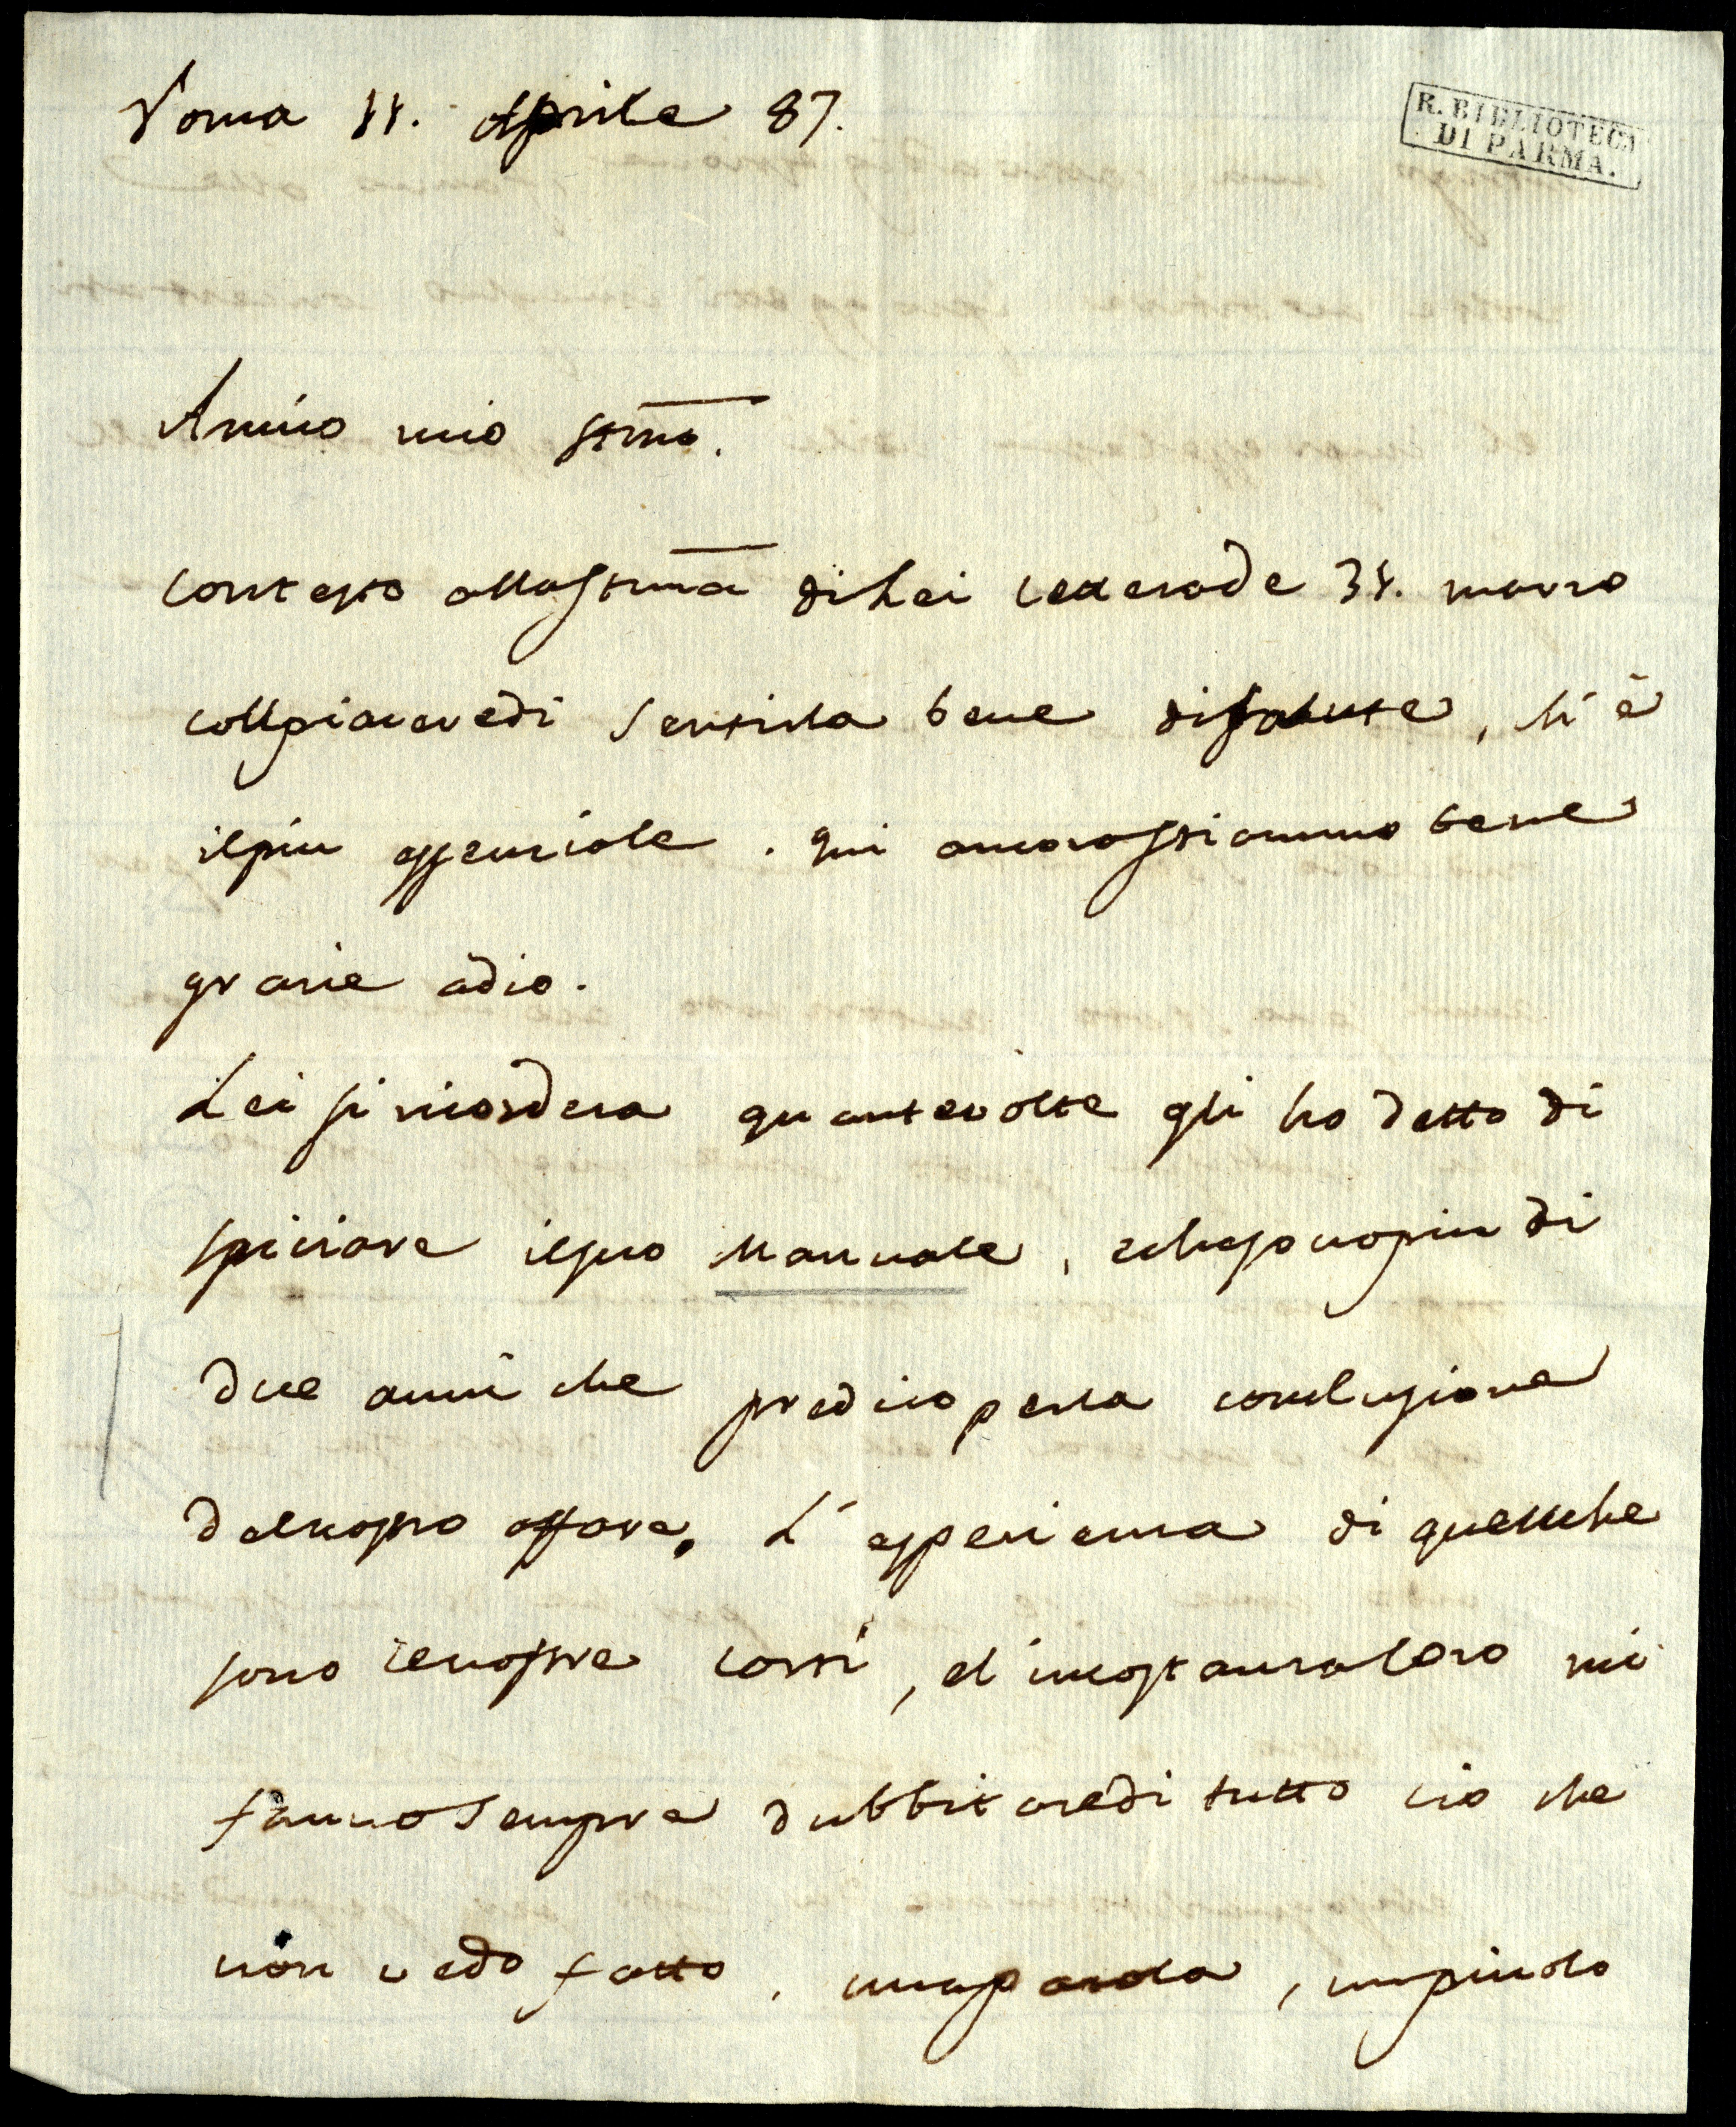 Roma 11. Aprile 87.
R. BIBLIOTECA
DI PARMA.
Amico mio stmo.
contesto allastima di Lei letterade 31. marzo
collpiaceredi sentirla bene disalute, ch'è
ilpiu essenziale. qui ancorasstiammo bene
grazie adio.
Lei si ricordera quantevolte gli ho detto di
spiciare ilsuo Manuale, echesonopiu di
due anni che predicoperla conclusione
delnostro affare. L'essperienza di quelliche
sono lenostre corti, el'incostanzaloro mi
fannosempre dubbitaredi tutto cio che
non vedo fatto. unaparola, unpiciolo